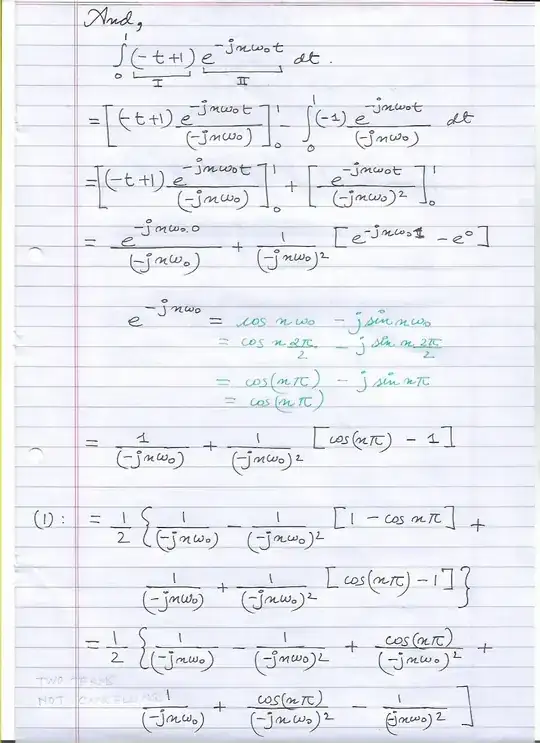 And,
∫₀¹ (-t+1) e^{-jnω₀t} dt.
I II
= [(-t+1) e^{-jnω₀t}/(-jnω₀)]₀¹ - ∫₀¹ (-1) e^{-jnω₀t}/(-jnω₀) dt
= [(-t+1) e^{-jnω₀t}/(-jnω₀)]₀¹ + [e^{-jnω₀t}/(-jnω₀)²]₀¹
= e^{-jnω₀.0}/(-jnω₀) + 1/(-jnω₀)² [e^{-jnω₀1} - e⁰]
e^{-jnω₀} = cos nω₀ - j sin nω₀
= cos n 2π/2 - j sin n 2π/2
= cos(nπ) - j sin nπ
= cos(nπ)
= 1/(-jnω₀) + 1/(-jnω₀)² [cos(nπ) - 1]
(1) : = 1/2 { 1/(-jnω₀) - 1/(-jnω₀)² [1 - cos nπ] +
1/(-jnω₀) + 1/(-jnω₀)² [cos(nπ) - 1] }
= 1/2 { 1/(-jnω₀) - 1/(-jnω₀)² + cos(nπ)/(-jnω₀)² +
TWO TERMS
NOT CANCELLING
1/(-jnω₀) + cos(nπ)/(-jnω₀)² - 1/(-jnω₀)² ]